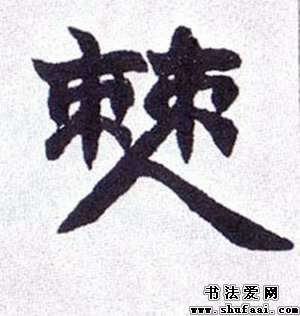 僰
书法爱网
www.shufaai.com